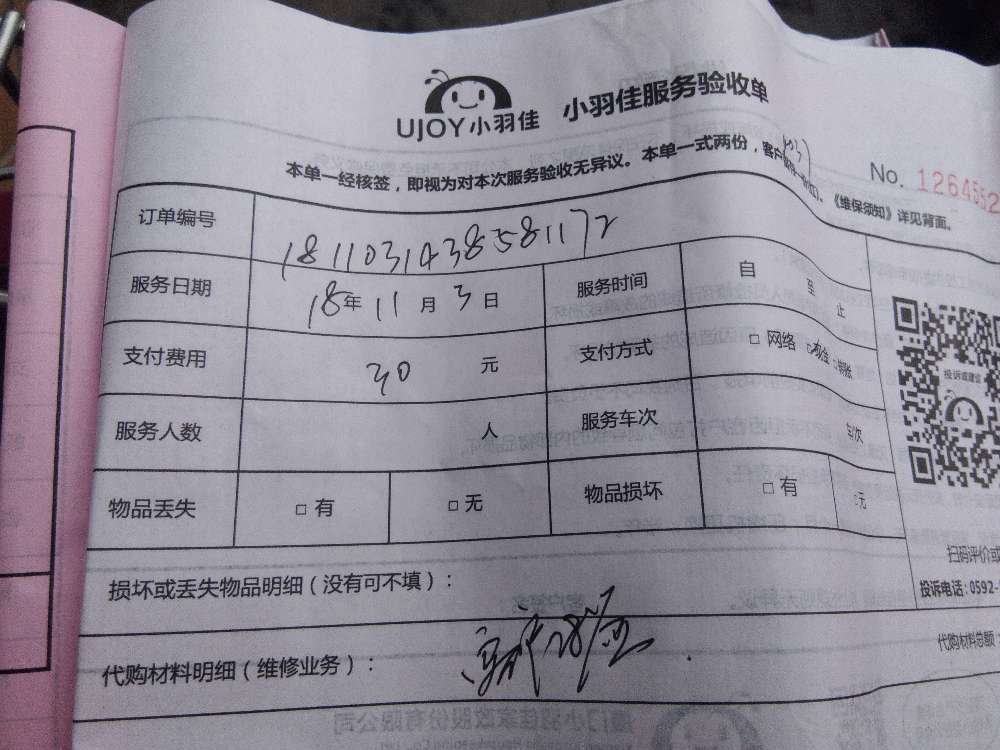 UJOY小羽佳 小羽佳服务验收单
本单一经核签，即视为对本次服务验收无异议。本单一式两份，客户 《维保须知》详见背面。
No. 1264552
订单编号 1811031438581172
服务日期 18年 11月 3日 服务时间 自 至 止
支付费用 30 元 支付方式 □ 网络 □ 现金 □ 转账
服务人数 人 服务车次 车次
物品丢失 □ 有 □ 无 物品损坏 □ 有 □ 无
投诉或建议
扫码评价或
投诉电话：0592-
损坏或丢失物品明细（没有可不填）：
代购材料明细（维修业务）：
代购材料总额：